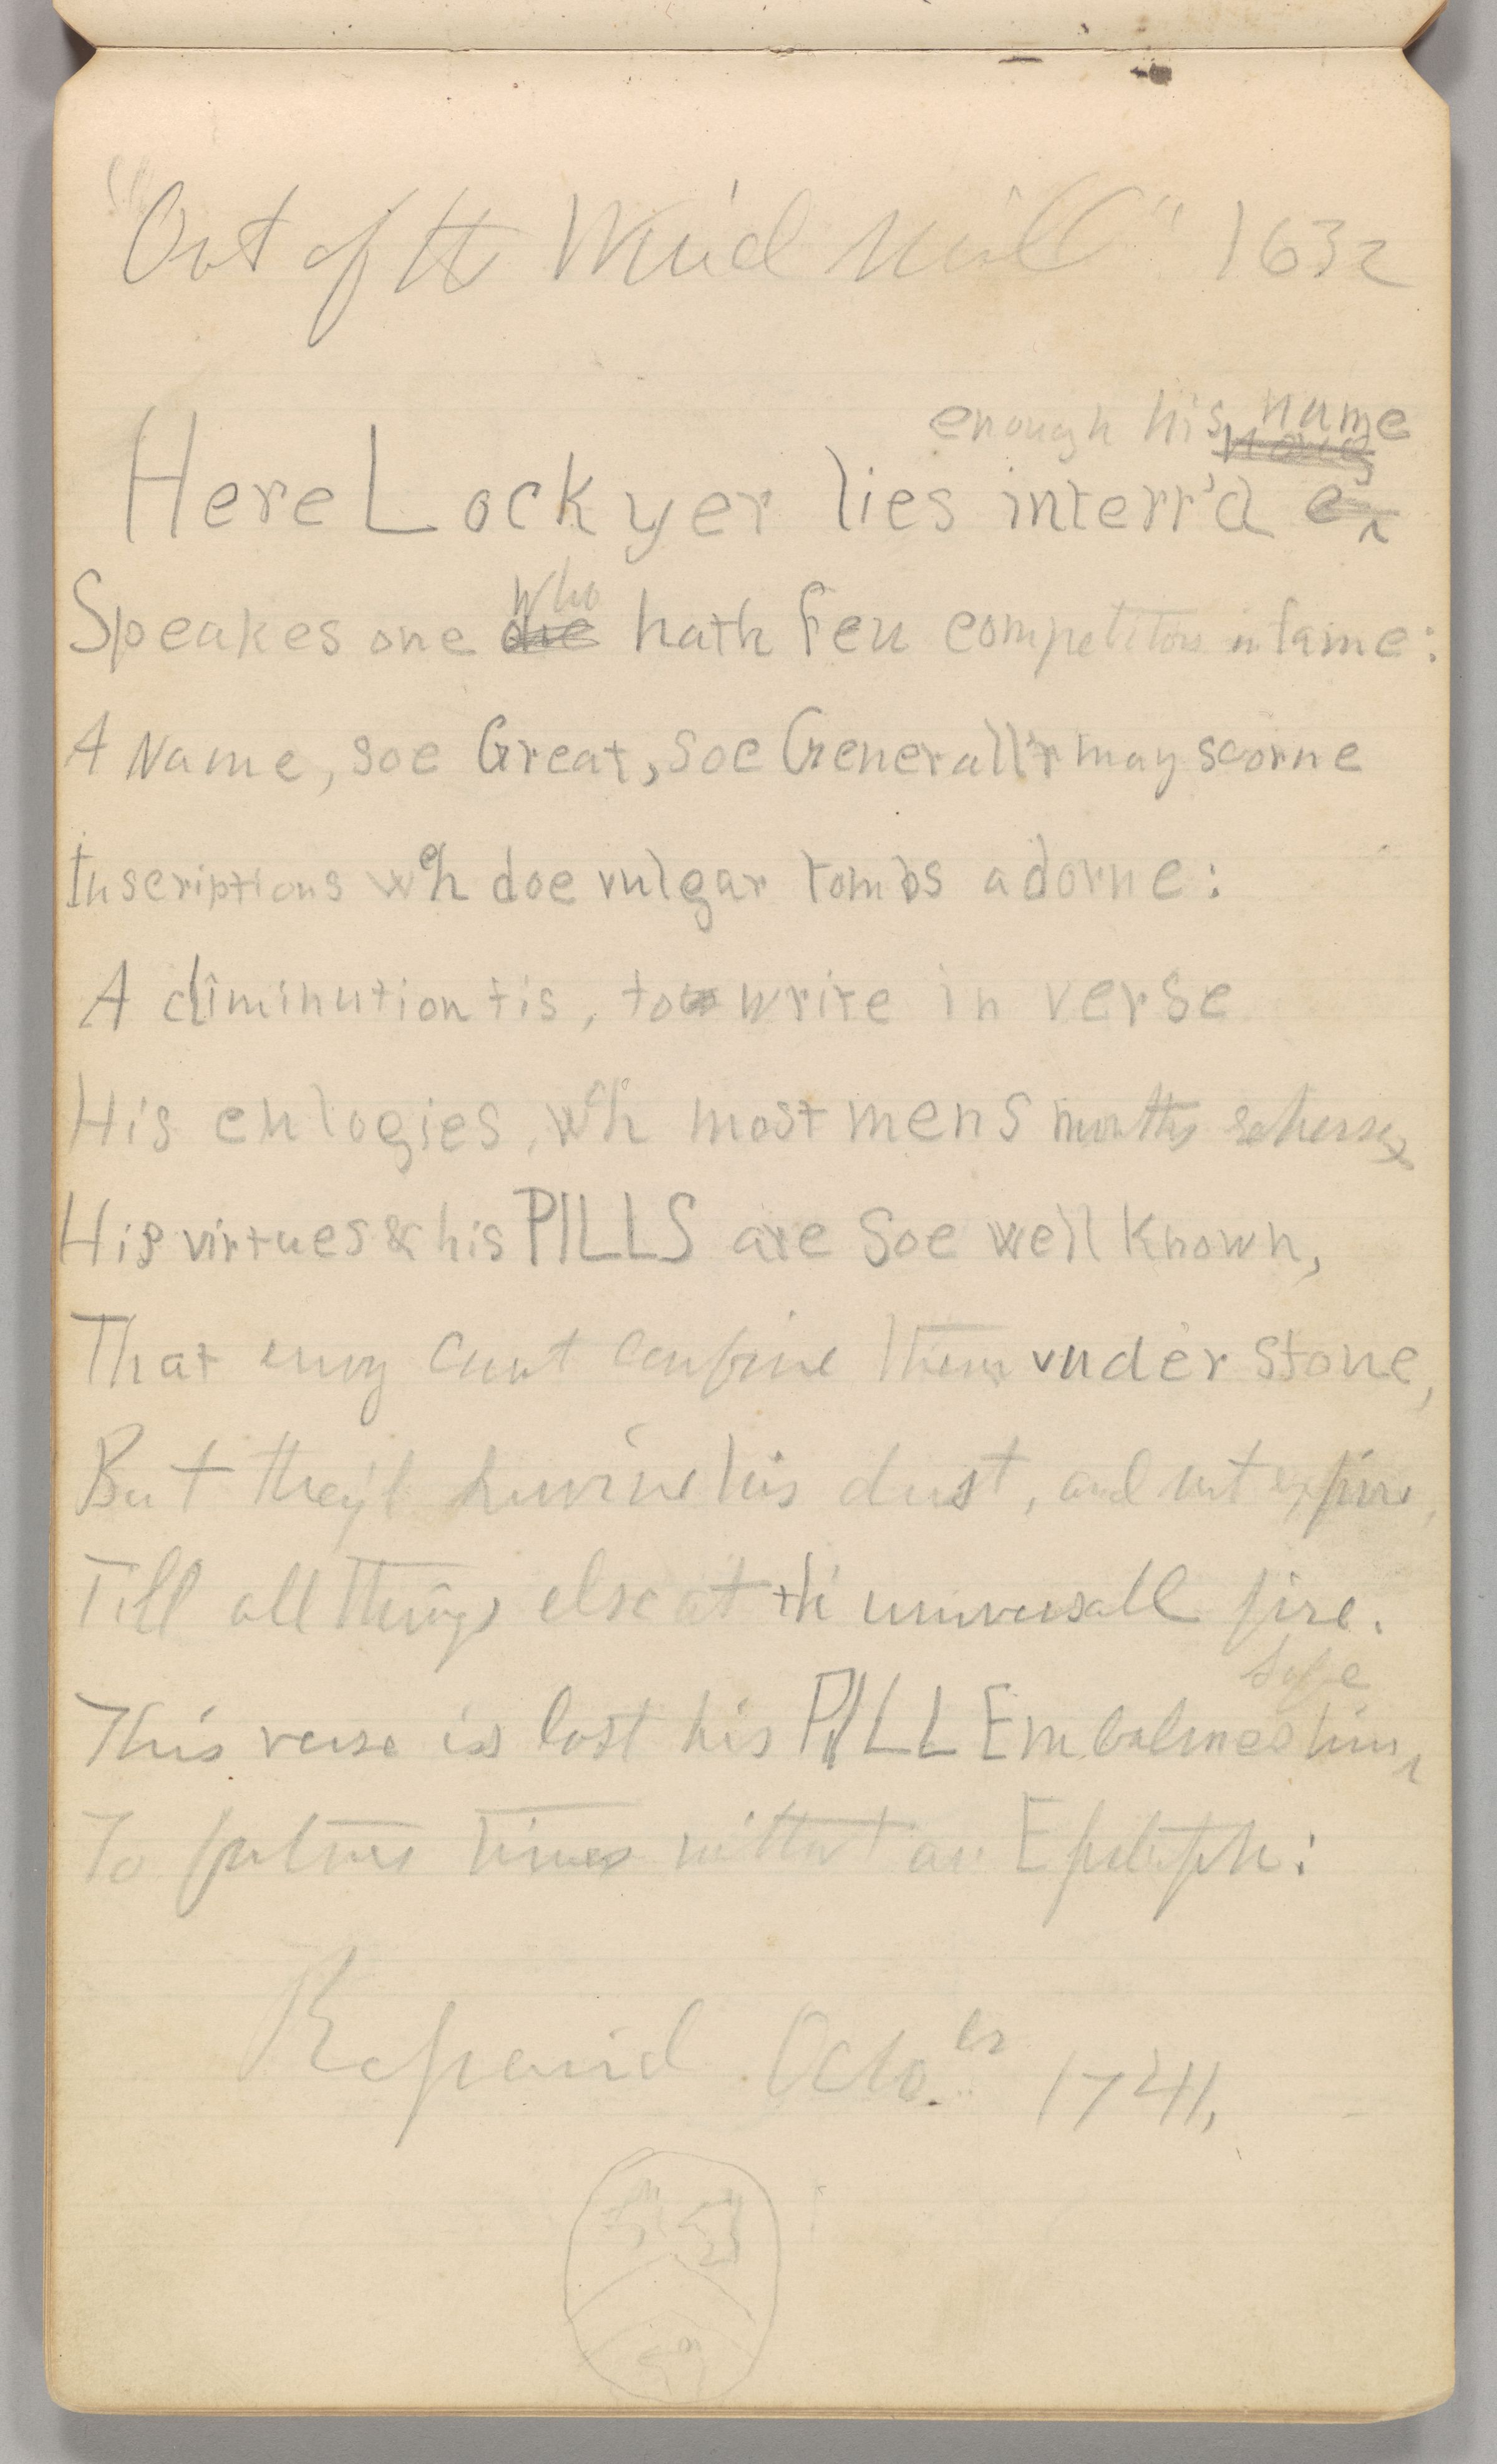 "Out of the Wind Mill" 1632
enough his name
Here Lockyer lies interr'd
who
Speakes one hath few competitors in fame:
A Name, soe Great, soe Generall't may scorne
Inscriptions wch doe vulgar tombs adorne:
A diminution tis, to write in verse
His eulogies, wch most mens mouths rehearse
His virtues & his PILLS are soe well known,
That envy cant confine them vnder stone,
But they'l survive his dust, and not expire,
Till all things else at th' universall fire.
safe
This verse is lost his PILL Embalmes him
To future times without an Epitaph:
Repaird Octo.er 1741,